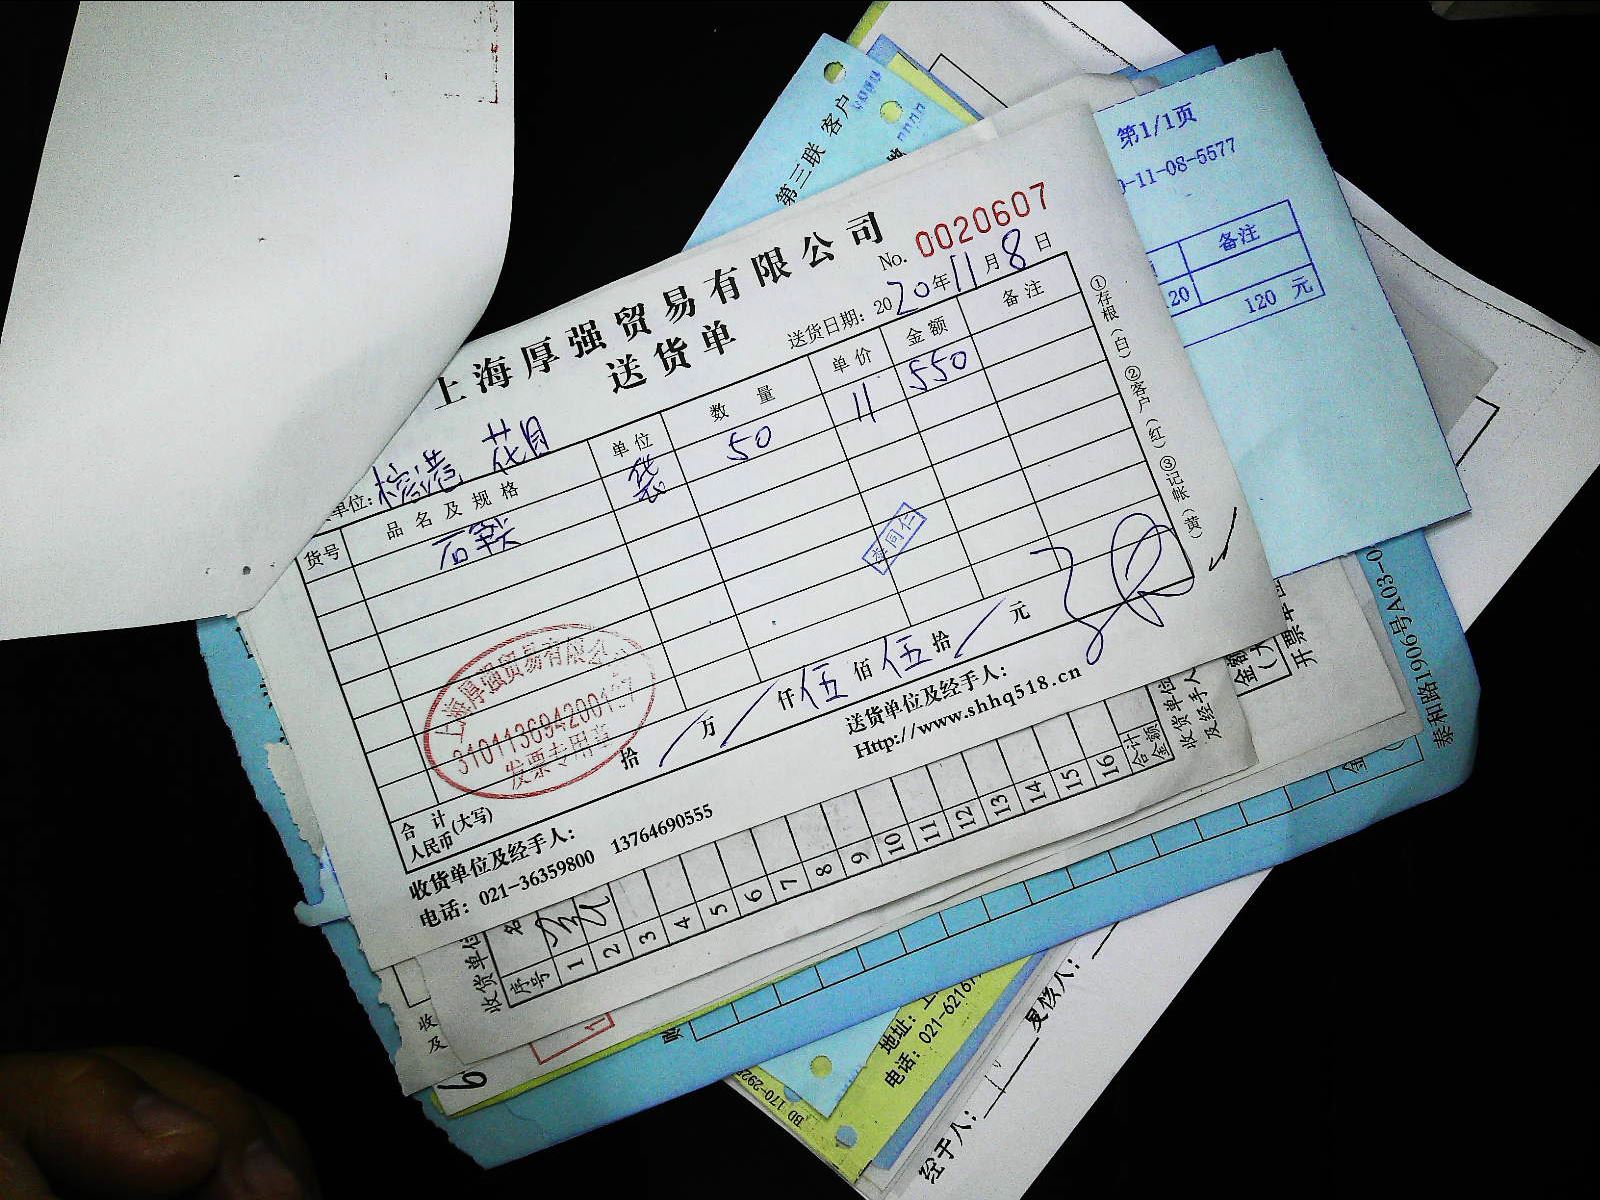 上海厚强贸易有限公司
送货单
No. 0020607
送货日期: 2020年11月8日
单位: 花月
货号 品名及规格 单位 数量 单价 金额 备注
袋 50 11 550
①存根(白)②客户(红)③表记(黄)
李同仁
上海厚强贸易有限公司
发票专用章
合计
人民币(大写) 拾 万 仟 伍 佰 伍 拾 元
收货单位及经手人:
送货单位及经手人:
电话: 021-36359800 13764690555
Http://www.shhq518.cn
第三联 客户
第1/1页
-11-08-5577
备注
20 120 元
收货单位
序号 1 2 3 4 5 6 7 8 9 10 11 12 13 14 15 16 合计金额
名
收货单位
及经手人
金额
(大
开票单位
泰和路1906号A03-0
收
及
地址: 上
电话: 021-6216
BD 170-292
复核人:
经手人: